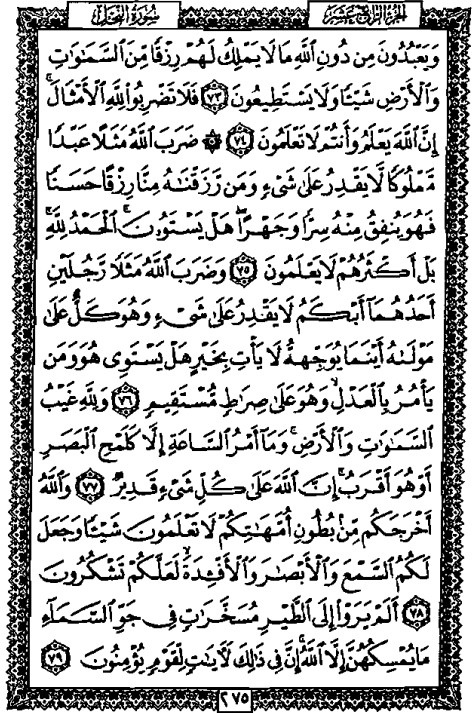 الجزء الرابع عشر
سورة النحل
وَيَعْبُدُونَ مِن دُونِ اللَّهِ مَا لَا يَمْلِكُ لَهُمْ رِزْقًا مِّنَ السَّمَوَاتِ
وَالْأَرْضِ شَيْئًا وَلَا يَسْتَطِيعُونَ ٧٣ فَلَا تَضْرِبُوا لِلَّهِ الْأَمْثَالَ ۚ
إِنَّ اللَّهَ يَعْلَمُ وَأَنتُمْ لَا تَعْلَمُونَ ٧٤ ۞ ضَرَبَ اللَّهُ مَثَلًا عَبْدًا
مَّمْلُوكًا لَّا يَقْدِرُ عَلَىٰ شَيْءٍ وَمَن رَّزَقْنَاهُ مِنَّا رِزْقًا حَسَنًا
فَهُوَ يُنفِقُ مِنْهُ سِرًّا وَجَهْرًا ۖ هَلْ يَسْتَوُونَ ۚ الْحَمْدُ لِلَّهِ ۚ
بَلْ أَكْثَرُهُمْ لَا يَعْلَمُونَ ٧٥ وَضَرَبَ اللَّهُ مَثَلًا رَّجُلَيْنِ
أَحَدُهُمَا أَبْكَمُ لَا يَقْدِرُ عَلَىٰ شَيْءٍ وَهُوَ كَلٌّ عَلَىٰ
مَوْلَاهُ أَيْنَمَا يُوَجِّههُّ لَا يَأْتِ بِخَيْرٍ هَلْ يَسْتَوِي هُوَ وَمَن
يَأْمُرُ بِالْعَدْلِ ۙ وَهُوَ عَلَىٰ صِرَاطٍ مُّسْتَقِيمٍ ٧٦ وَلِلَّهِ غَيْبُ
السَّمَوَاتِ وَالْأَرْضِ ۚ وَمَا أَمْرُ السَّاعَةِ إِلَّا كَلَمْحِ الْبَصَرِ
أَوْ هُوَ أَقْرَبُ ۚ إِنَّ اللَّهَ عَلَىٰ كُلِّ شَيْءٍ قَدِيرٌ ٧٧ وَاللَّهُ
أَخْرَجَكُم مِّن بُطُونِ أُمَّهَاتِكُمْ لَا تَعْلَمُونَ شَيْئًا وَجَعَلَ
لَكُمُ السَّمْعَ وَالْأَبْصَارَ وَالْأَفْئِدَةَ ۙ لَعَلَّكُمْ تَشْكُرُونَ
٧٨ أَلَمْ يَرَوْا إِلَى الطَّيْرِ مُسَخَّرَاتٍ فِي جَوِّ السَّمَاءِ
مَا يُمْسِكُهُنَّ إِلَّا اللَّهُ ۗ إِنَّ فِي ذَٰلِكَ لَآيَاتٍ لِّقَوْمٍ يُؤْمِنُونَ ٧٩
٢٧٥